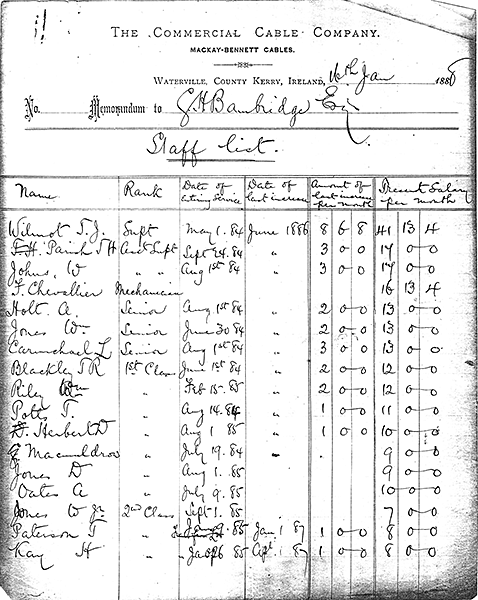 THE COMMERCIAL CABLE COMPANY.
MACKAY-BENNETT CABLES.
WATERVILLE, COUNTY KERRY, IRELAND, 16th Jan 1886
No. Memorandum to G H Bambridge Esq
Staff list.
Name Rank Date of entering Service Date of last increase Amount of last increase per month Present Salary per month
Wilmot T. J. Supt May 1. 84 June 1886 8 6 8 41 13 4
F. H. Parish T H Asst Supt Sept 24. 84 " 3 0 0 17 0 0
Johns, W " " Aug 1st 84 " 3 0 0 17 0 0
F. Chevallier Mechanician 16 13 4
Holt A. Senior Aug 1st 84 " 2 0 0 13 0 0
Jones Wm Senior June 30 84 " 2 0 0 13 0 0
Carmichael L Senior Aug 1st 84 " 3 0 0 13 0 0
Blackley T R 1st Class June 1st 84 " 2 0 0 12 0 0
Riley Wm " Feb 15. 85 " 2 0 0 12 0 0
Potts T. " Aug 14. 84 " 1 0 0 11 0 0
Herbert D " Aug 1 85 " 1 0 0 10 0 0
Macmuldrow " July 19. 84 " 9 0 0
Jones D " Aug 1. 85 9 0 0
Oates A " July 9. 85 10 0 0
Jones W Jr 2nd Class Sept 1. 85 7 0 0
Paterson T " 85 Jan 1 87 1 0 0 8 0 0
Kay H " 85 1 87 1 0 0 8 0 0